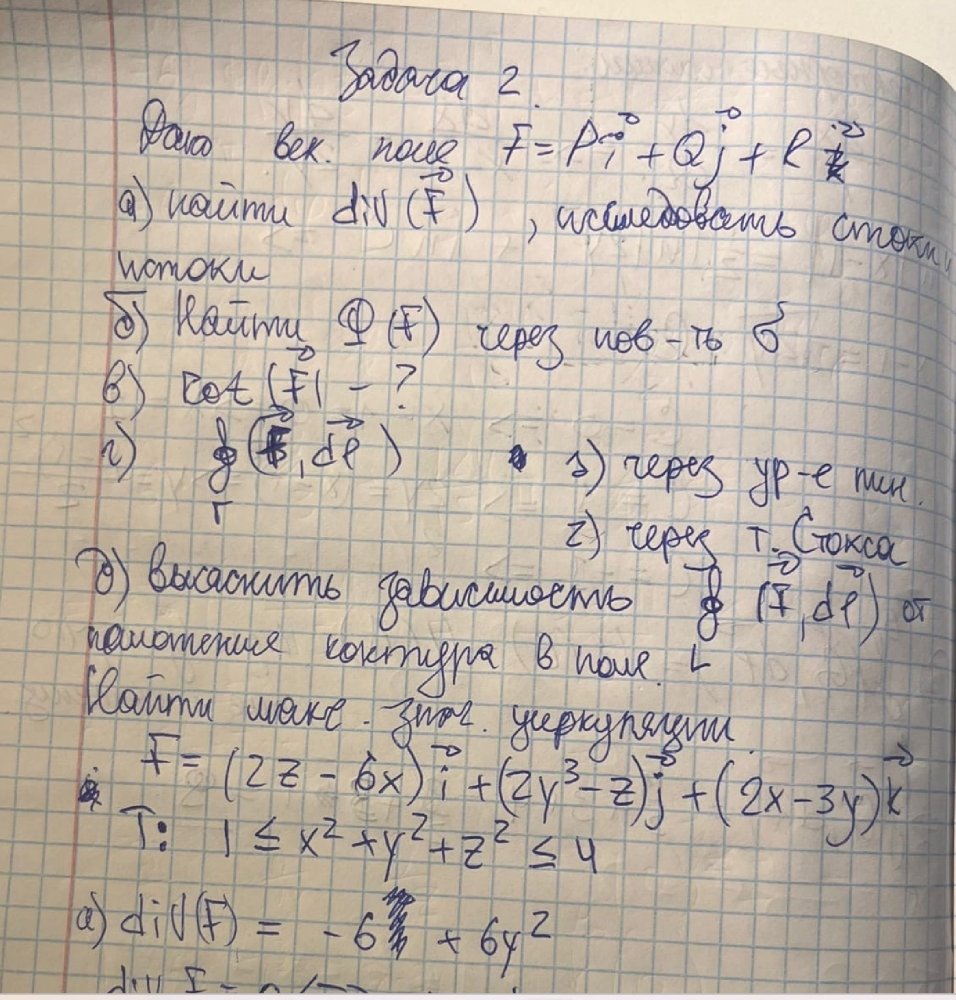 Задача 2.
Дано век. поле F = Pi + Qj + Rk
а) найти div(F), исследовать стоки,
истоки
б) Найти Ф(F) через пов-ть σ
в) rot(F) - ?
г) ∮(F, dl) 1) через ур-е лин.
Г
2) через т. Стокса
д) выяснить зависимость ∮ (F, dl) от
положения контура в поле. L
Найти макс. знач. циркуляции.
F = (2z - 6x) i + (2y³ - z) j + (2x - 3y) k
T: 1 ≤ x² + y² + z² ≤ 4
а) div(F) = -6 + 6y²